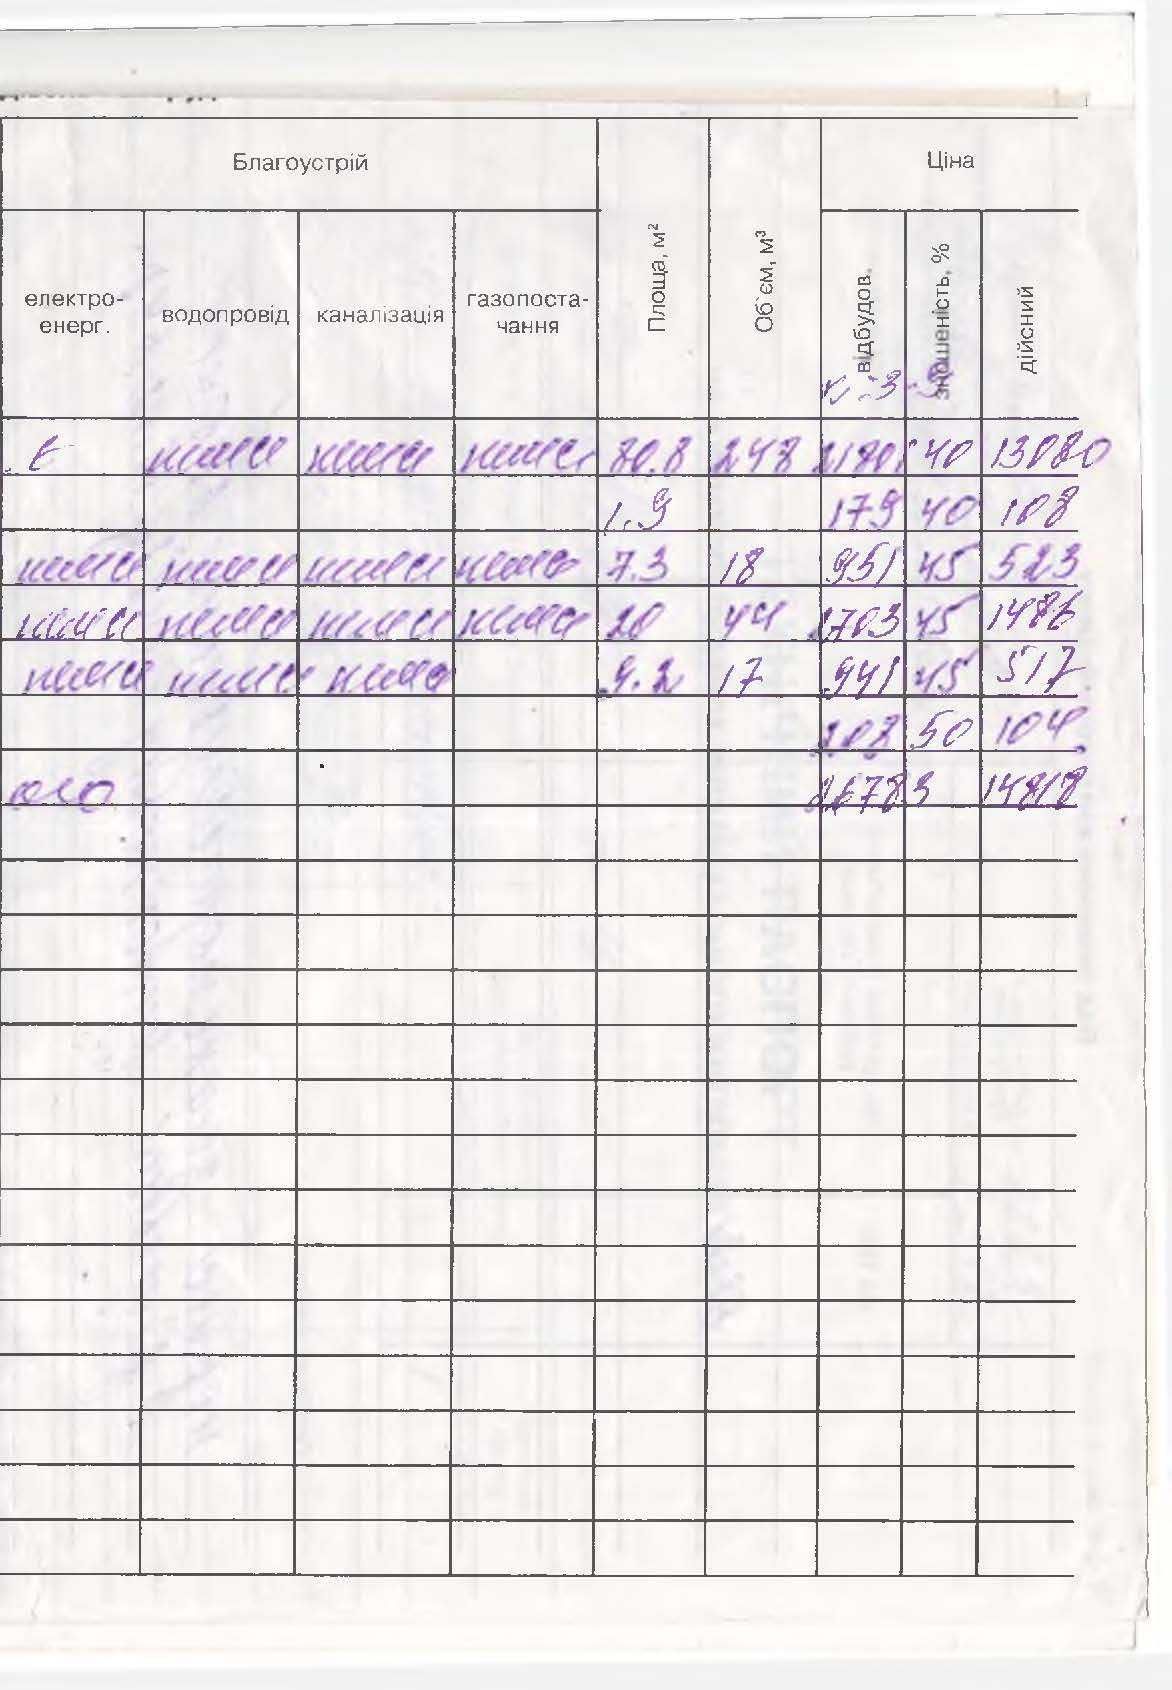 Благоустрій Ціна
електро-
енерг.
водопровід
каналізація
газопоста-
чання
Площа, м²
Об'єм, м³
відбудов.
зношеність, %
дійсний
Є нема нема нема 80.8 248 21801 40 13080
1.9 179 40 108
нема нема нема нема 7.3 18 951 45 523
нема нема нема нема 20 44 2703 45 1486
нема нема нема 9.2 17 941 45 517
208 50 104
26783 14818